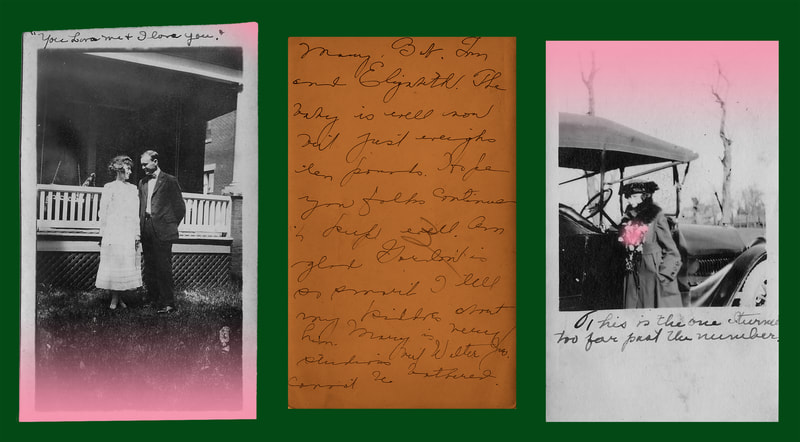 "You Love me & I love you."
Mary, B.N. Tom
and Elizabeth. The
baby is well now
but just weighs
ten pounds. Hope
you folks continue
to keep well. Am
glad is
so smart. I tell
my kiddies about
him. Mary is very
studious but Walter Jas.
cannot be bothered.
This is the one I turned
too far past the number.